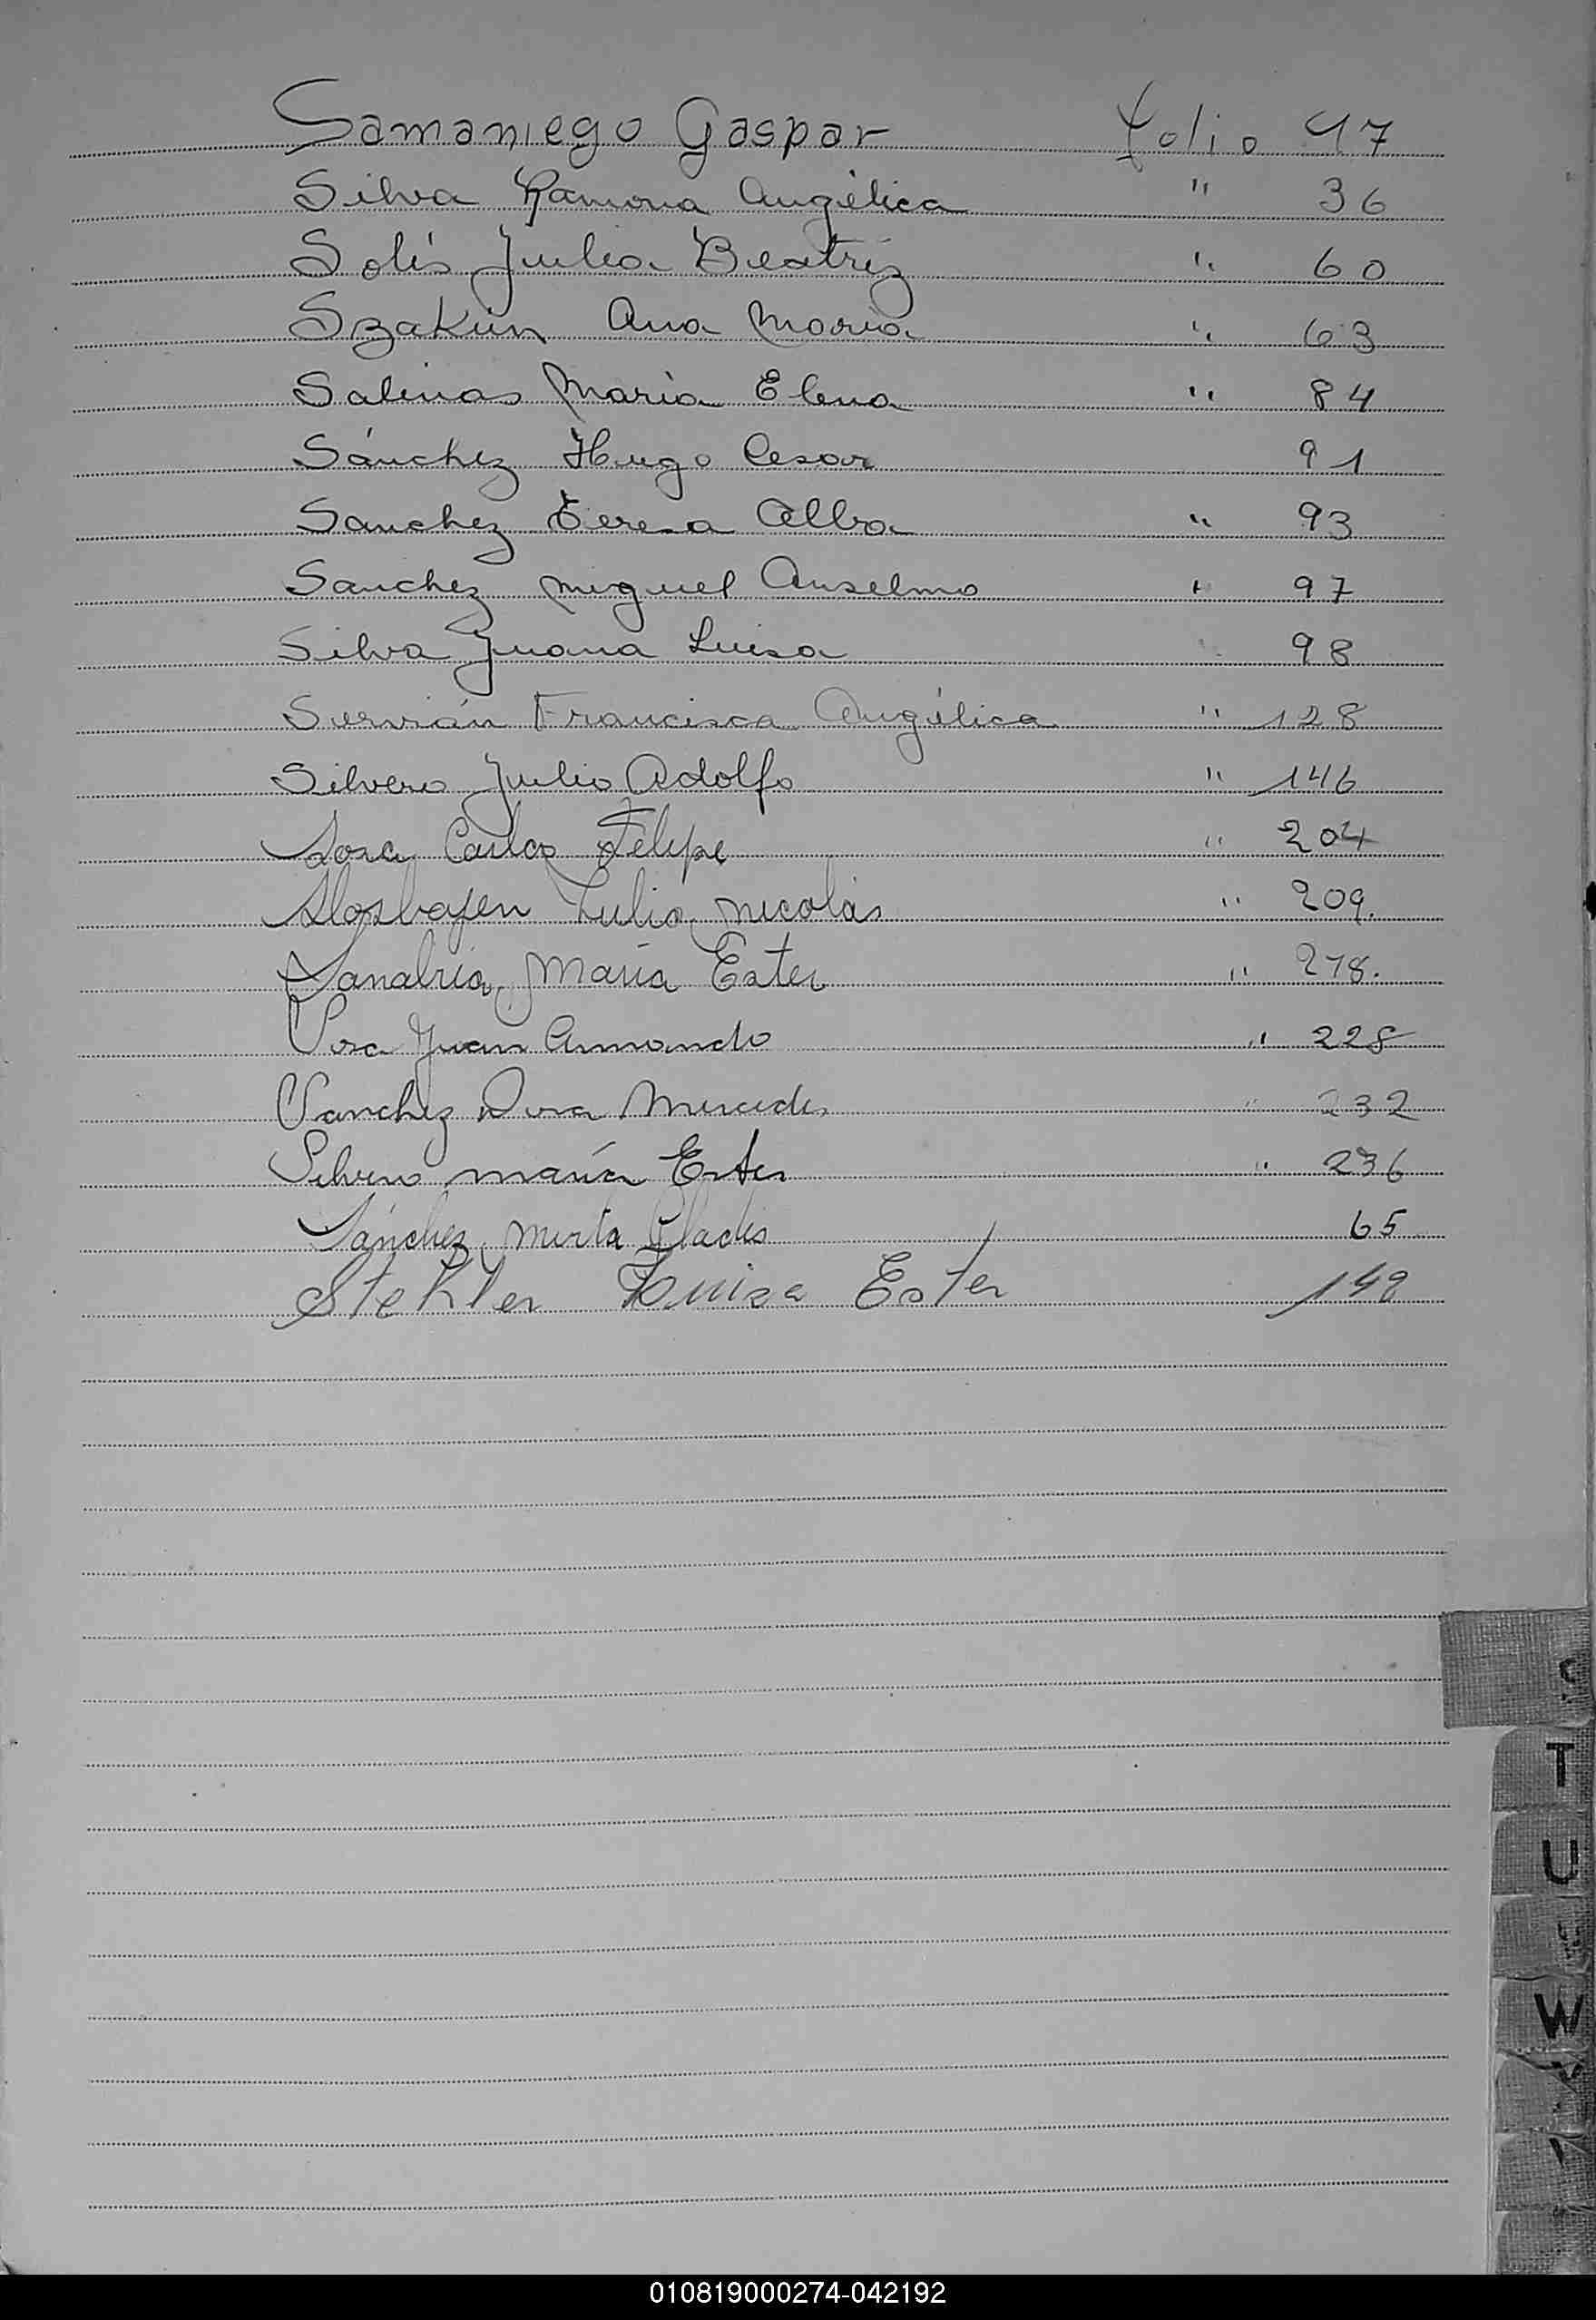 Samaniego Gaspar folio 47
Silva Ramona Angélica " 36
Solís Julia Beatriz " 60
Szakún Ana María " 63
Salinas María Elena " 84
Sánchez Hugo Cesar 91
Sanchez Teresa Alba " 93
Sanchez Miguel Anselmo " 97
Silva Juana Luisa 98
Servián Francisca Angélica " 128
Silvero Julio Adolfo " 146
Sosa Carlos Felipe " 204
Julio Nicolás " 209.
Sanabria, María Ester " 218.
Sosa Juan Armando " 228
Sanchez Mercedes " 232
Silvero María Ester " 236
Sánchez, Mirta Gladis 65
Stehler Luisa Ester 149
S
T
U
W
010819000274-042192